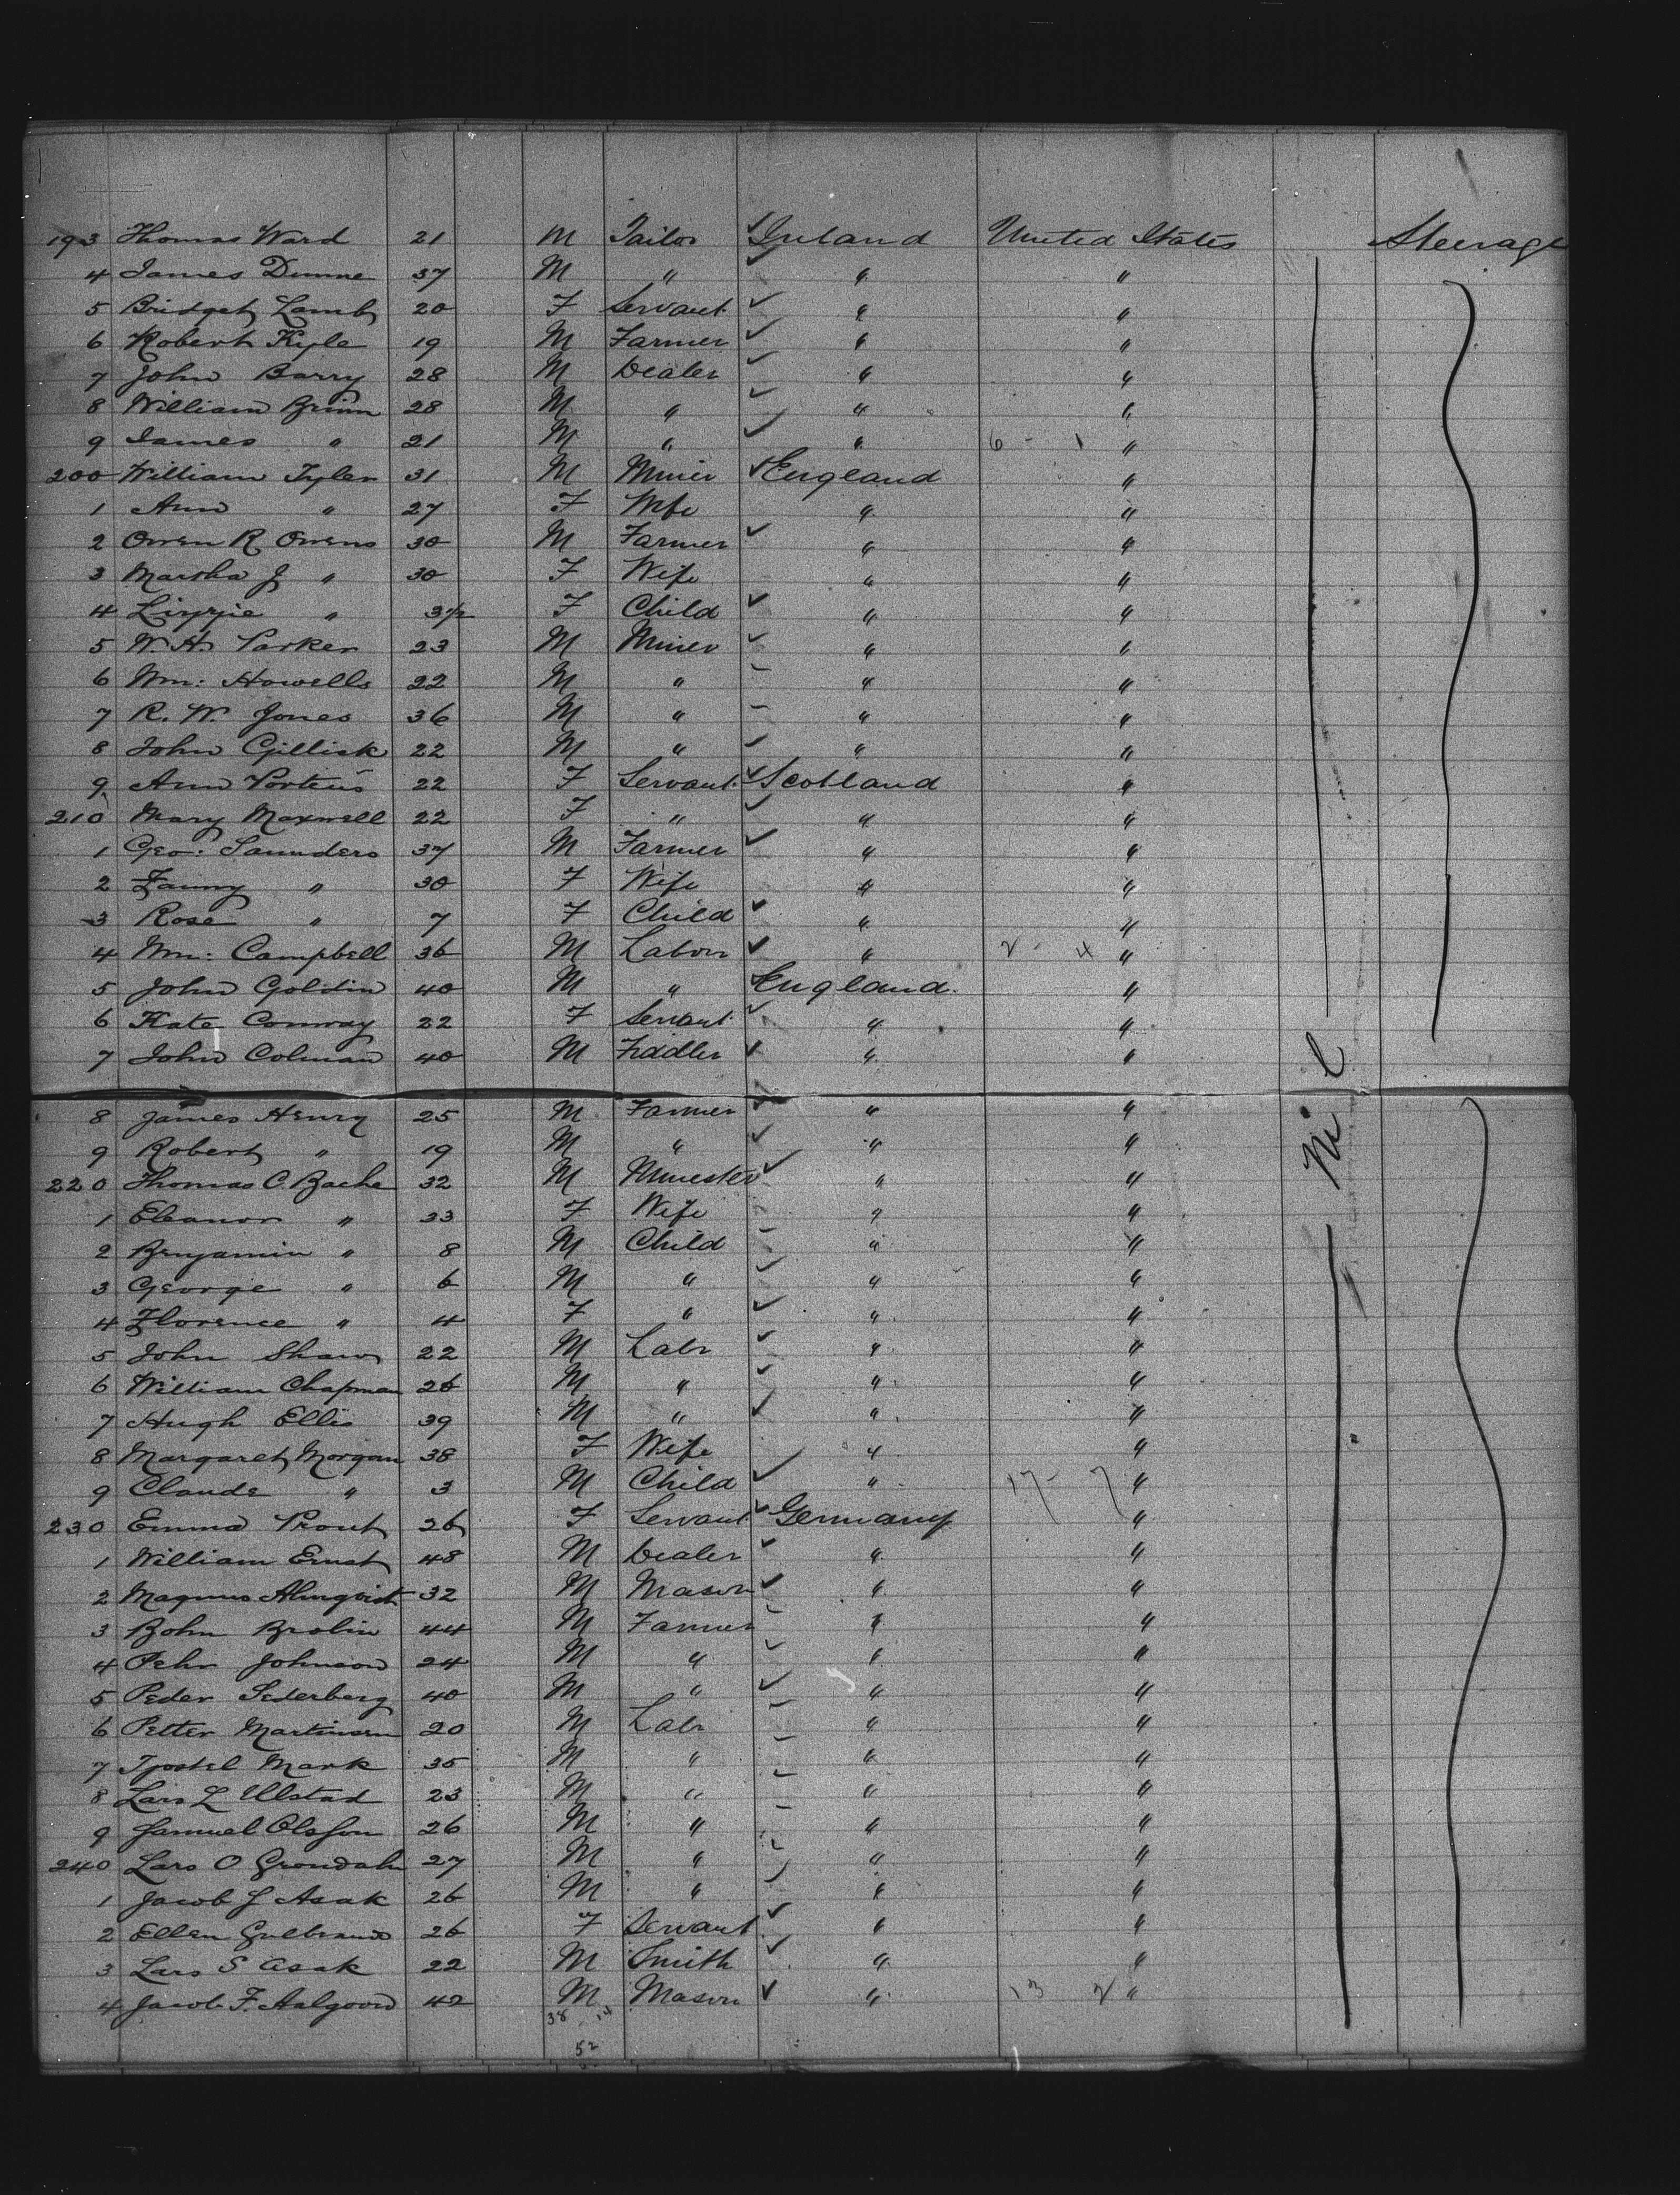 193 Thomas Ward 21 M Tailor ✓ Ireland United States Steerage
4 James Dunne 37 M " ✓ " "
5 Bridget Lamb 20 F Servant ✓ " "
6 Robert Kyle 19 M Farmer ✓ " "
7 John Barry 28 M Dealer ✓ " "
8 William Brinn 28 M " ✓ " "
9 James " 21 M " ✓ " 6 - 1 "
200 William Tyler 31 M Miner ✓ England "
1 Ann " 27 F Wife " "
2 Owen R Owens 30 M Farmer ✓ " "
3 Martha J " 30 F Wife " "
4 Lizzie " 3/12 F Child ✓ " "
5 W. H. Parker 23 M Miner ✓ " "
6 Wm: Howells 22 M " " "
7 R. W. Jones 36 M " " "
8 John Gillisk 22 M " ✓ " "
9 Ann Porteus 22 F Servant ✓ Scotland "
210 Mary Maxwell 22 F " ✓ " "
1 Geo: Saunders 37 M Farmer ✓ " "
2 Fanny " 30 F Wife " "
3 Rose " 7 F Child ✓ " "
4 Wm: Campbell 36 M Labor ✓ " 2 - 4 "
5 John Goldin 40 M " England "
6 Kate Conway 22 F Servant ✓ " "
7 John Colman 40 M Fiddler ✓ " "
Nil
8 James Henry 25 M Farmer ✓ " "
9 Robert " 19 M " ✓ " "
220 Thomas C. Bache 32 M Minester ✓ " "
1 Eleanor " 33 F Wife " "
2 Benjamin " 8 M Child " "
3 George " 6 M " ✓ " "
4 Florence " 4 F " ✓ " "
5 John Shaw 22 M Labr ✓ " "
6 William Chapman 26 M " ✓ " "
7 Hugh Ellis 39 M " ✓ " "
8 Margaret Morgan 38 F Wife ✓ " "
9 Claude " 3 M Child ✓ " 17 - 7 "
230 Emma Prout 26 F Servant ✓ Germany "
1 William Ernst 48 M Dealer ✓ " "
2 Magnus Almqvist 32 M Mason ✓ " "
3 John Brolin 44 M Farmer " "
4 Pehr Johnson 24 M " ✓ " "
5 Peder Sederberg 40 M " ✓ " "
6 Petter Martinsen 20 M Labr " "
7 Mark 35 M " " "
8 Lars L Ulstad 23 M " " "
9 Samuel Olsson 26 M " " "
240 Lars O Grondahl 27 M " " "
1 Jacob J Asak 26 M " " "
2 Ellen Gulbrands 26 F Servant ✓ " "
3 Lars S Asak 22 M Smith ✓ " "
4 Jacob F. Aalgoord 42 M Mason ✓ " 13 2 "
38 14
52